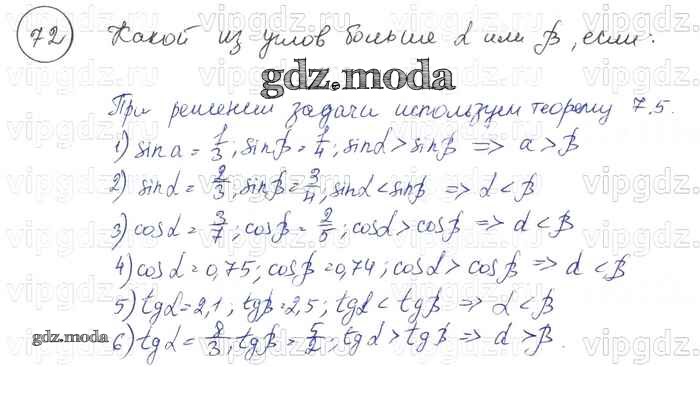 72 Какой из углов больше α или β, если:
gdz.moda
При решении задачи используем теорему 7.5.
1) sin a = 1/3; sin β = 1/4; sin α > sin β => a > β
2) sin α = 2/3; sin β = 3/4; sin α < sin β => α < β
3) cos α = 3/7; cos β = 2/5; cos α > cos β => α < β
4) cos α = 0,75; cos β = 0,74; cos α > cos β => α < β
5) tg α = 2,1; tg β = 2,5; tg α < tg β => α < β
gdz.moda
6) tg α = 8/3; tg β = 5/2; tg α > tg β => α > β.